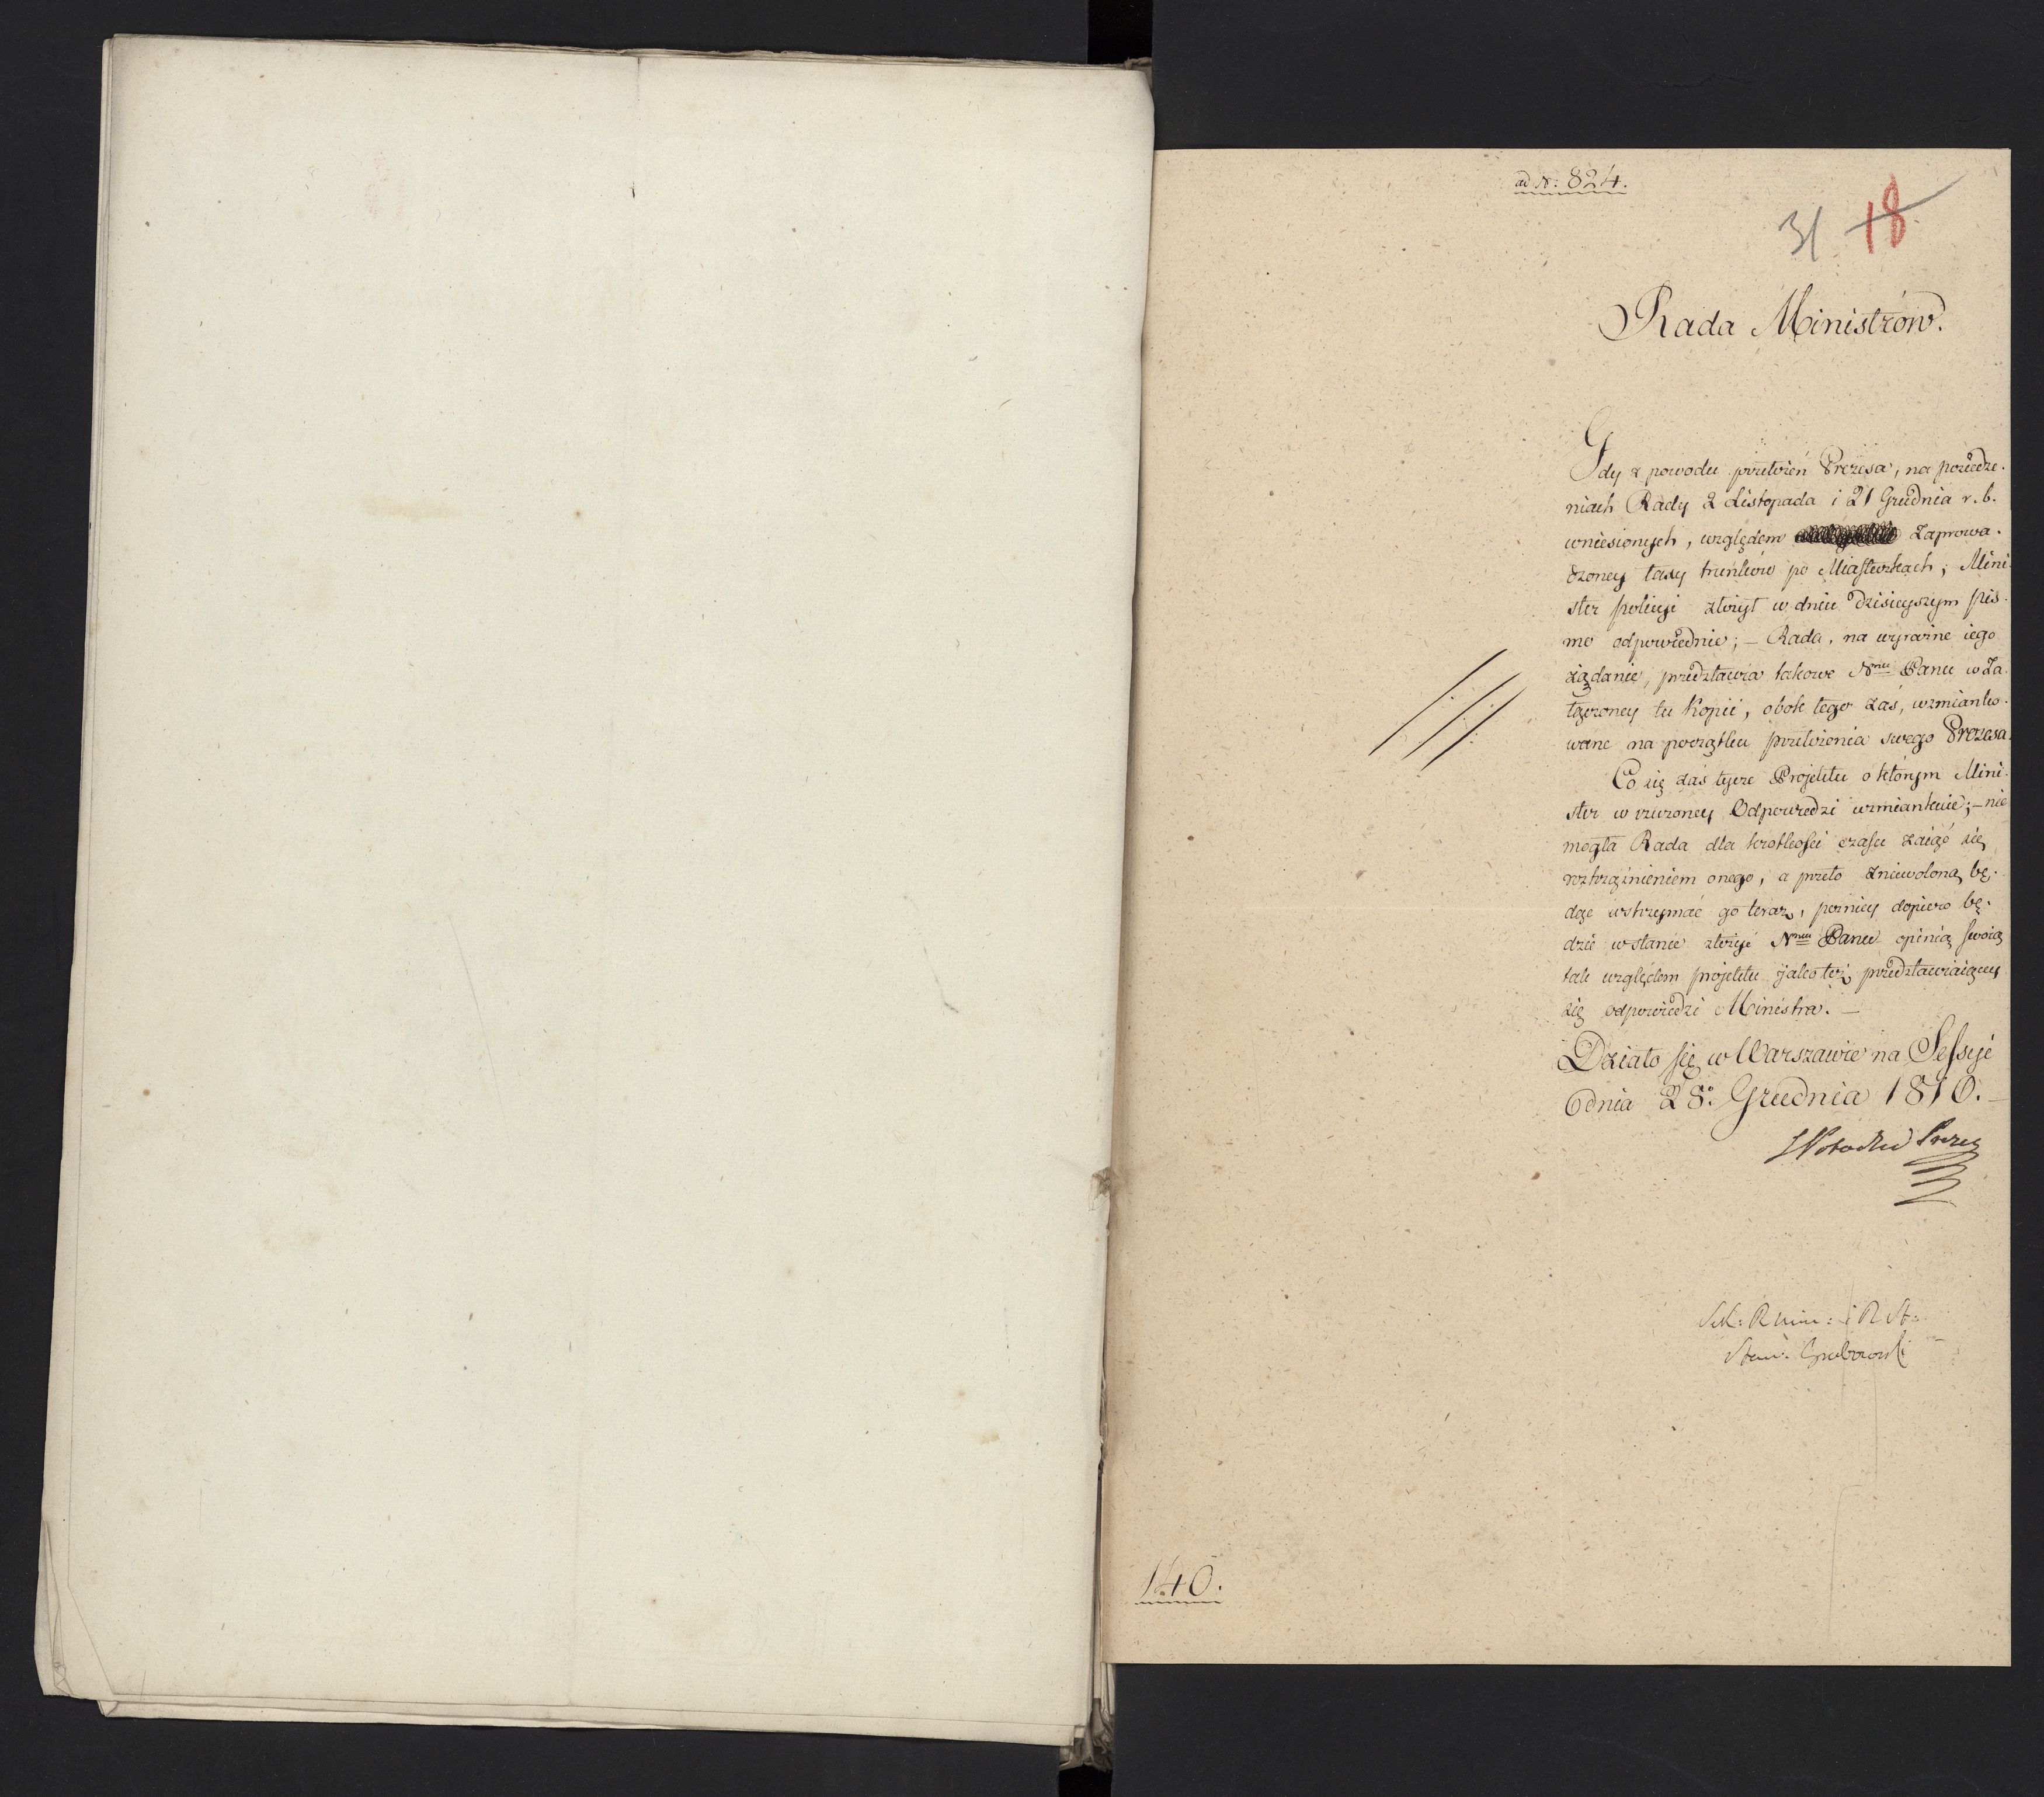 ad N: 824.
31 18
Rada Ministrów.
Gdy z powodu przełożeń Prezesa, na posiedze-
niach Rady 2 Listopada i 21 Grudnia r. b.
wniesionych, względem zaprowa-
dzoney taxy trunków po Miasteczkach; Mini-
ster policyi złożył w dniu dzisieyszym pis-
mo odpowiednie; – Rada, na wyraźne iego
żądanie, przedstawia takowe Nmu Panu w za-
łączoney tu kopii, obok tego zaś, wzmianko-
wane na początku przełożenia swego Prezesa.
Co się zaś tycze Projektu o którym Mini-
ster w rzeczoney Odpowiedzi wzmiankuie; – nie
mogła Rada dla krotkości czasu zaiąć się
roztrząśnieniem onego, a przeto zniewoloną bę-
dąc wstrzymać go teraz, pozniey dopiero bę-
dzie w stanie złożyć Nmu Panu opinią swoią
tak względem projektu jako też przedstawiaiącey
się odpowiedzi Ministra. –
Działo się w Warszawie na Sessyi
dnia 28o. Grudnia 1810. –
Potocki Prezes
Sek: R Min: i R St:
Stan: Grabowski
140.